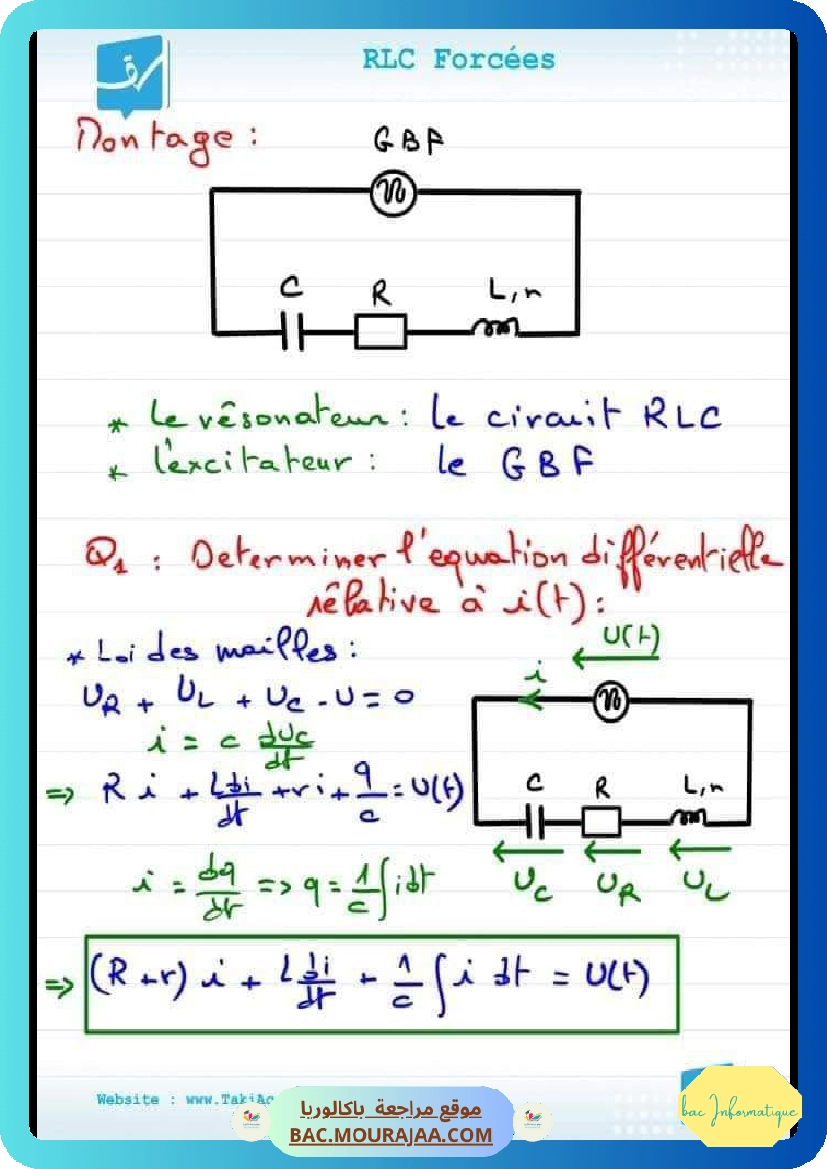 RLC Forcées
Montage :
GBF
C R L,r
* Le résonateur : le circuit RLC
* L'excitateur : le GBF
Q1 : Determiner l'equation différentielle
rélative à i(t) :
* Loi des mailles :
U(t)
i
UR + UL + UC - U = 0
i = c dUc/dt
=> R i + L di/dt + r i + q/c = U(t)
C R L,r
i = dq/dt => q = 1/c ∫ i dt
UC UR UL
=> (R + r) i + L di/dt + 1/c ∫ i dt = U(t)
Website : www.TakiAc
موقع مراجعة باكالوريا
BAC.MOURAJAA.COM
bac Informatique